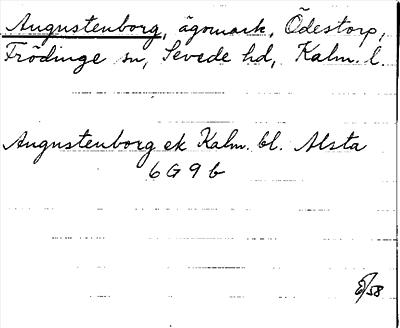 Augustenborg, ägomark, Ödestorp,
Frödinge sn, Sevede hd, Kalm. l.
Augustenborg ek Kalm. bl. Alsta
6 G 9 b
E/58